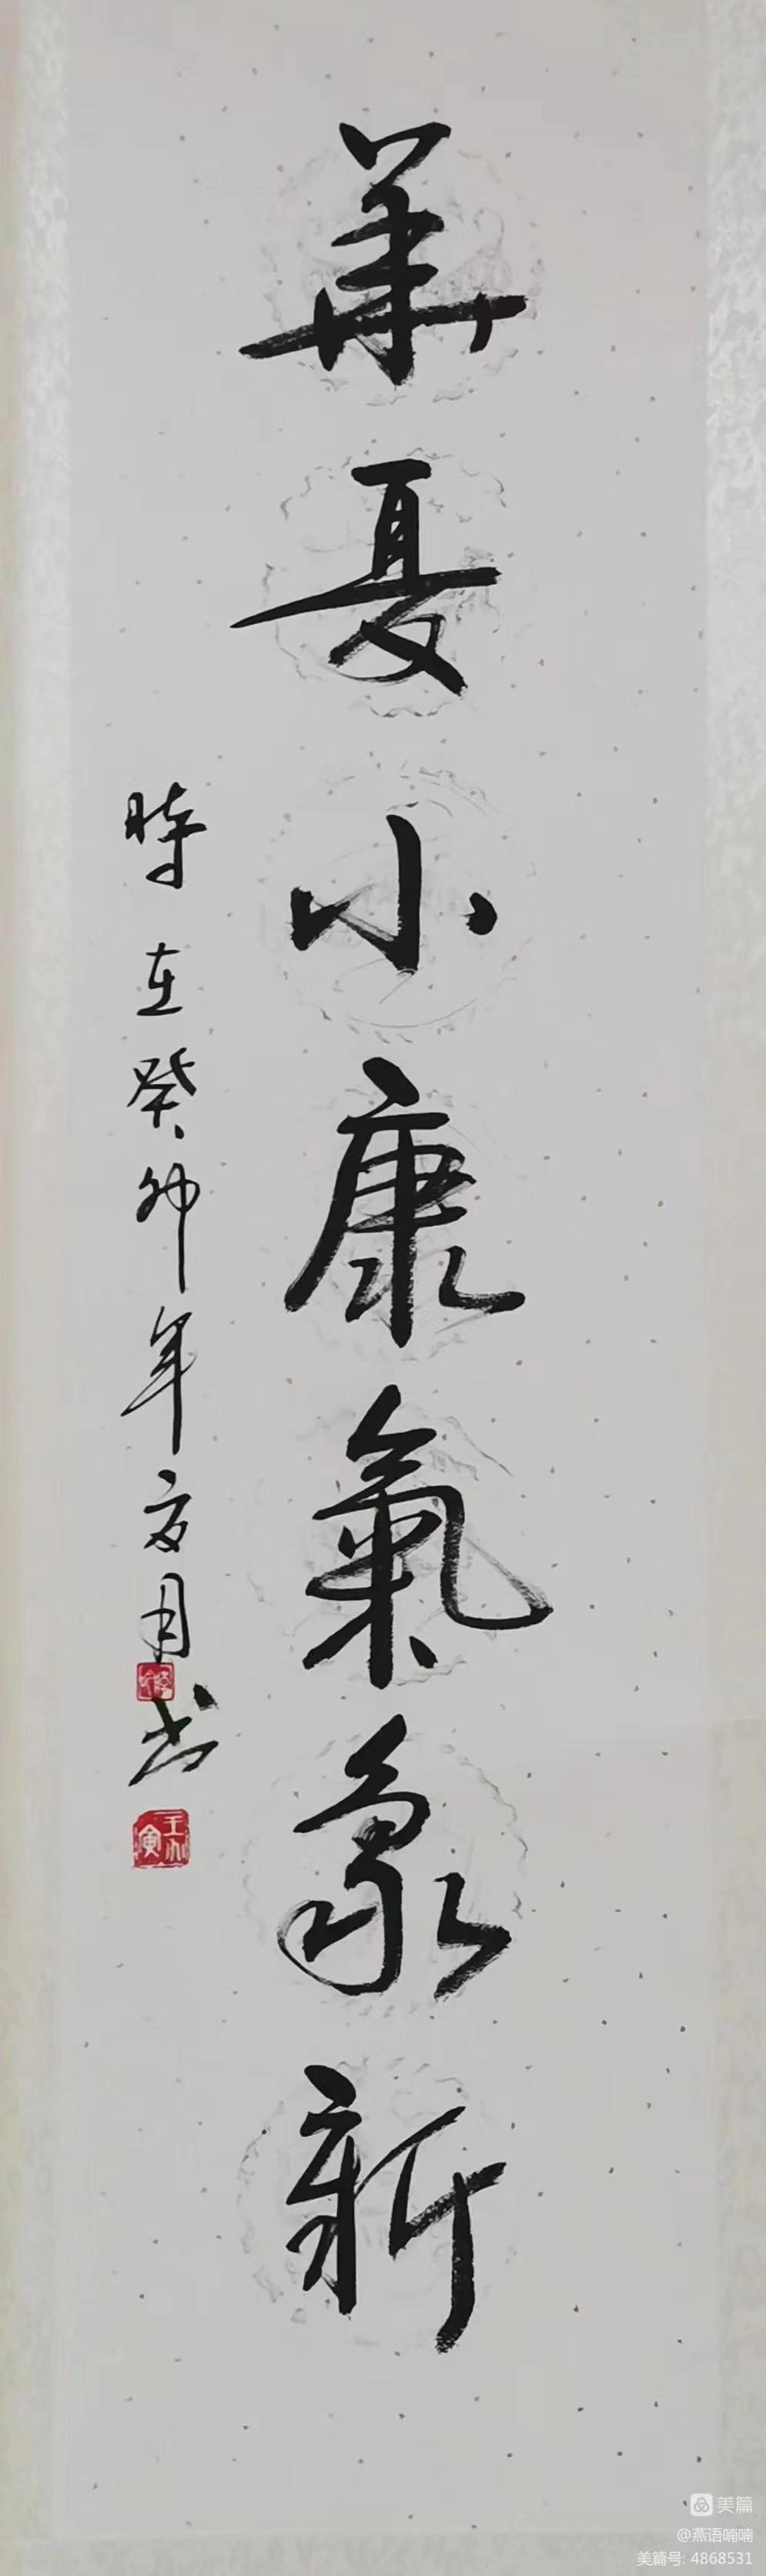 華夏小康氣象新
時在癸卯年夏月书
美篇
@燕语喃喃
美篇号: 4868531